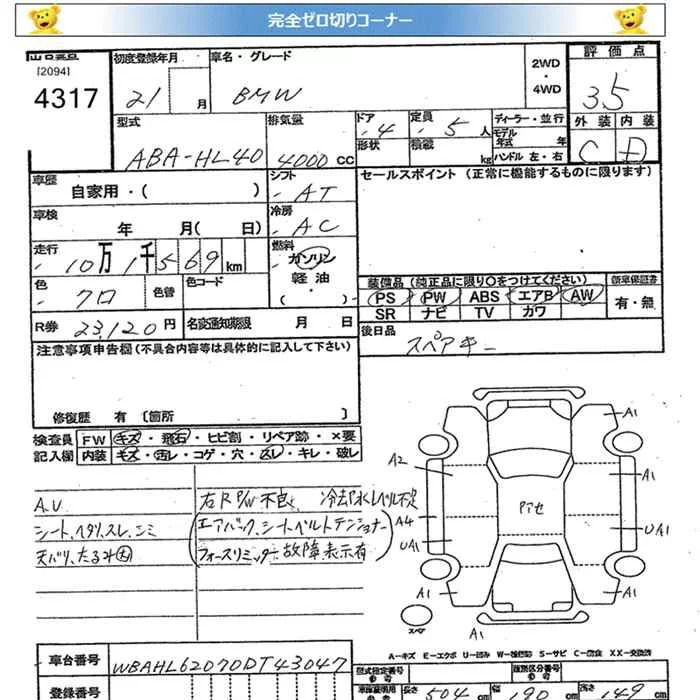 完全ゼロ切りコーナー
出品番号 初度登録年月 車名・グレード 評価点
[2094] 2WD
4317 21 月 BMW ・4WD 3.5
型式 排気量 ドア 定員 ディーラー・並行 外装 内装
ABA-HL40 4000 CC 4 5 人 モデル年式 年 C D
形状 積載 kg ハンドル 左・右
車歴 シフト セールスポイント (正常に機能するものに限ります)
自家用・( ) AT
車検 冷房
年 月( 日) AC
走行 燃料
10万1千569km ガソリン
軽油 装備品(純正品に限り○をつけてください) 新車保証書
色 色替 色コード PS PW ABS エアB AW 有・無
クロ ( ) SR ナビ TV カワ
R券 23,120円 名変通知期限 月 日 後日品
注意事項申告欄(不具合内容等は具体的に記入して下さい) スペアキー
修復歴 有 [箇所 ]
検査員 FW キズ・飛石・ヒビ割・リペア跡・×要
記入欄 内装 キズ・汚レ・コゲ・穴・スレ・キレ・破レ
A1
A2 A1
A.U 右R P/W不良、冷却水レベル不足 Pアセ
シート、ヘタリ、スレ、シミ (エアバック、シートベルトテンショナー A4 UA1
天バリ、たるみ大 フォースリミッター故障表示有) UA1
A1 A1
スペア A1
A-キズ E-エクボ U-凹み W-補修跡 S-サビ C-腐食 XX-交換済
車台番号 WBAHL62070DT43047 型式指定番号 参考 類別区分番号 参考
登録番号 車検証明用 参考 長さ 504 cm 幅 190 cm 高さ 149 cm